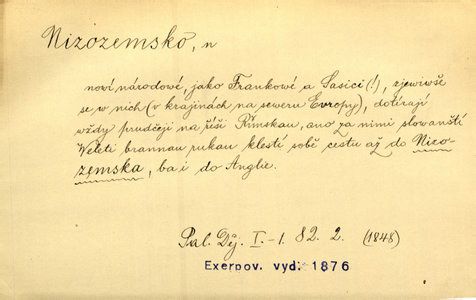 Nizozemsko, n
noví národové, jako Frankové a Sasici (!), zjewiwše
se w nich (v krajinách na seweru Evropy), dotírají
wždy prudčeji na říši Římskau, ano za nimi slowanští
Weleti brannau rukau klestí sobě cestu až do Nizo-
zemska, ba i do Anglie.
Pal. Děj. I.-1. 82. 2. (1848)
Exerpov. vyd. 1876